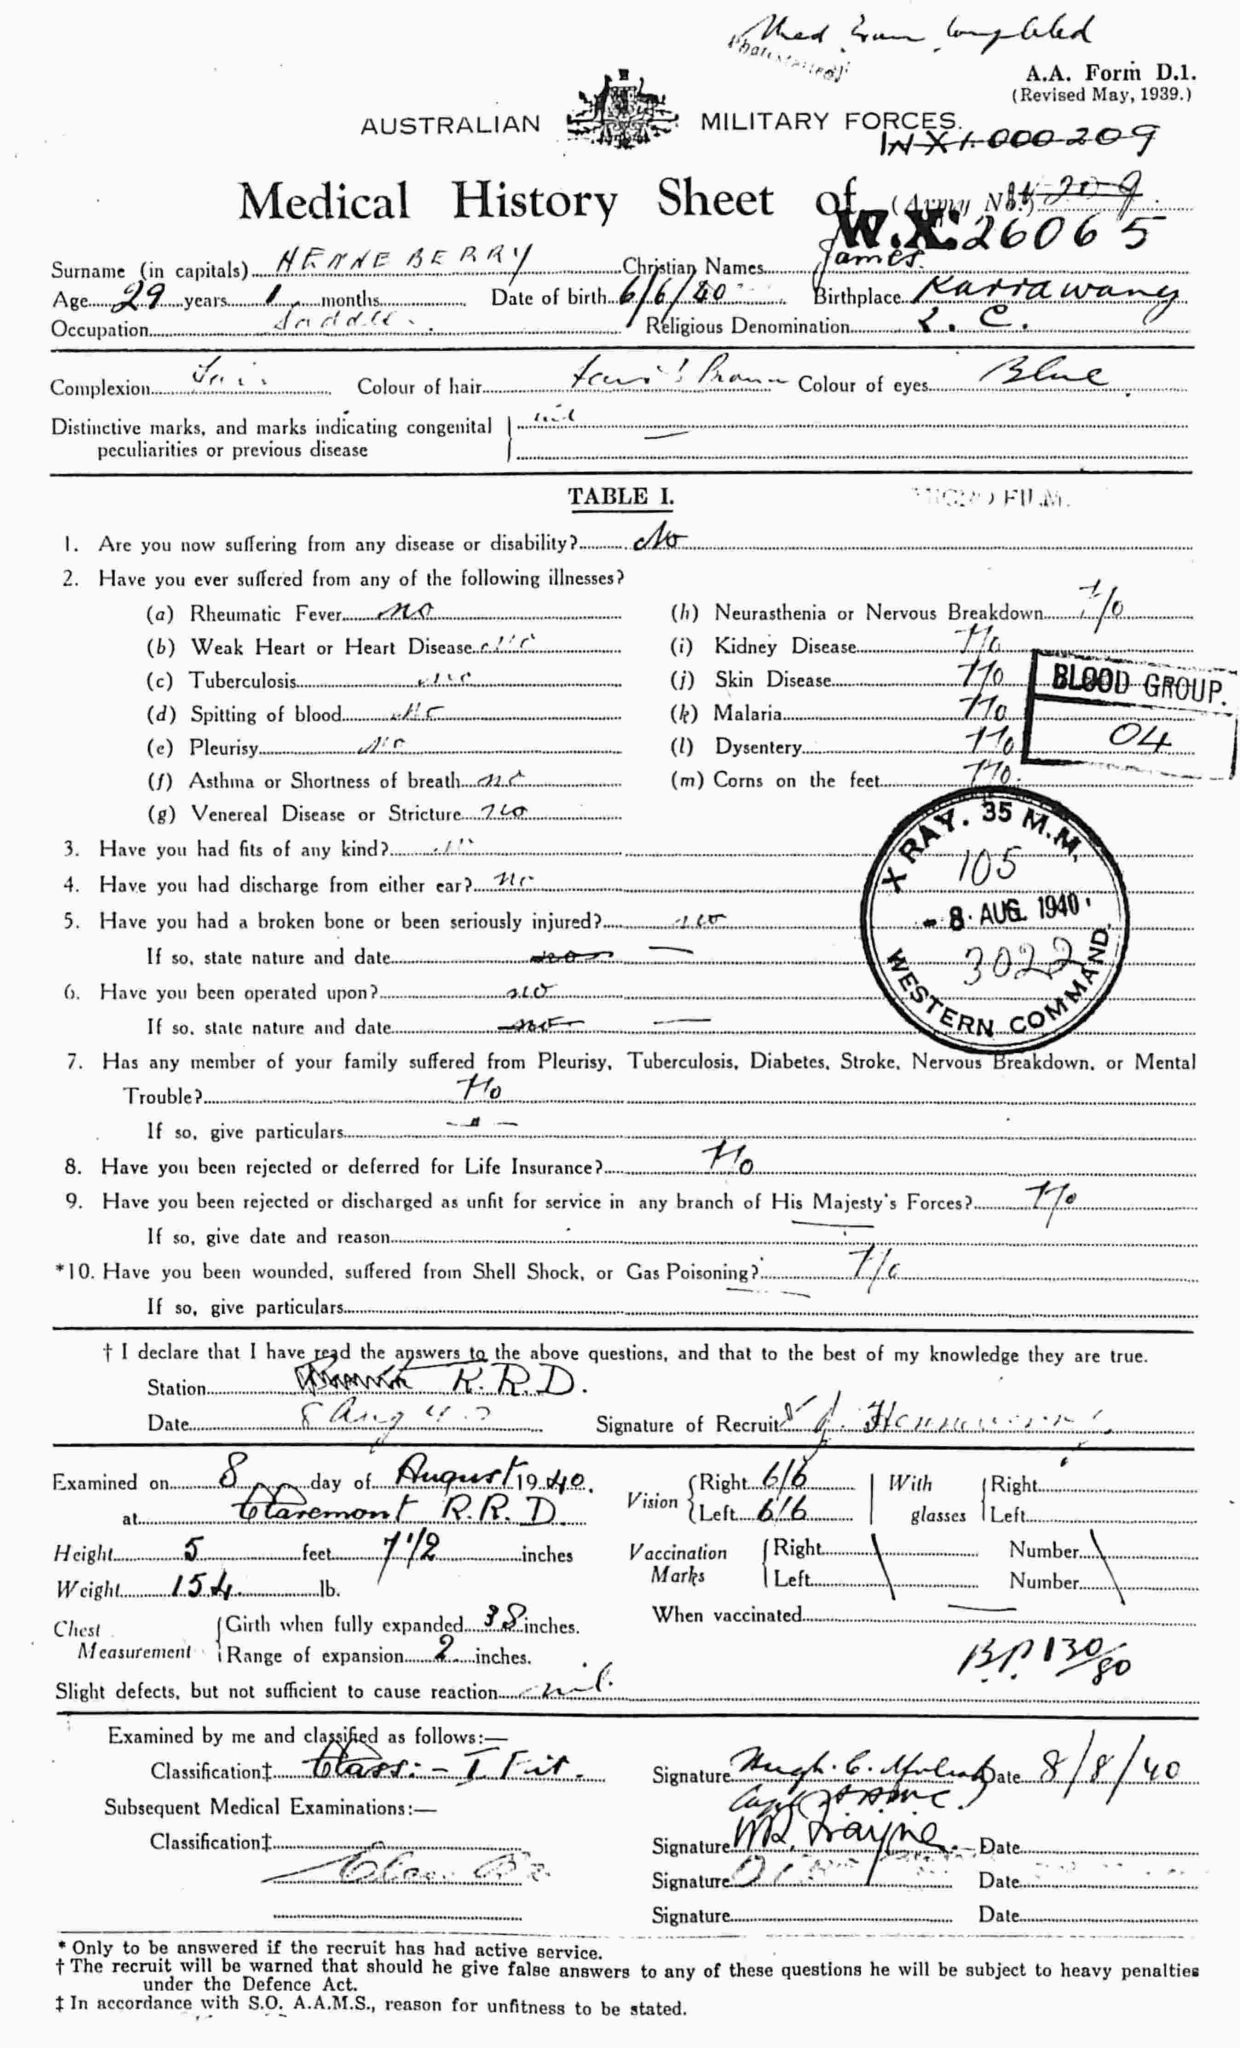 Med Exam Completed
A.A. Form D.1.
(Revised May, 1939.)
AUSTRALIAN MILITARY FORCES.
WX1.000209
Medical History Sheet of (Army No.) 209
W.X. 26065
Surname (in capitals) HENNEBERRY Christian Names James.
Age 29 years 1 months Date of birth 6/6/ Birthplace Karrawang
Occupation Religious Denomination C.
Complexion Fair Colour of hair Brown Colour of eyes Blue
Distinctive marks, and marks indicating congenital nil
peculiarities or previous disease —
TABLE I. MICRO FILM.
1. Are you now suffering from any disease or disability? No
2. Have you ever suffered from any of the following illnesses?
(a) Rheumatic Fever no
(b) Weak Heart or Heart Disease no
(c) Tuberculosis no
(d) Spitting of blood no
(e) Pleurisy no
(f) Asthma or Shortness of breath no
(g) Venereal Disease or Stricture no
(h) Neurasthenia or Nervous Breakdown No
(i) Kidney Disease No
(j) Skin Disease No
(k) Malaria No
(l) Dysentery No
(m) Corns on the feet No.
BLOOD GROUP.
04
3. Have you had fits of any kind? no
4. Have you had discharge from either ear? no
5. Have you had a broken bone or been seriously injured? no
If so, state nature and date no —
6. Have you been operated upon? no
If so, state nature and date no —
X RAY. 35 M.M.
105
- 8 AUG 1940
3022
WESTERN COMMAND.
7. Has any member of your family suffered from Pleurisy, Tuberculosis, Diabetes, Stroke, Nervous Breakdown, or Mental
Trouble? No
If so, give particulars - " -
8. Have you been rejected or deferred for Life Insurance? No
9. Have you been rejected or discharged as unfit for service in any branch of His Majesty's Forces? No
If so, give date and reason
*10. Have you been wounded, suffered from Shell Shock, or Gas Poisoning? No
If so, give particulars
† I declare that I have read the answers to the above questions, and that to the best of my knowledge they are true.
Station R.R.D.
Date 8 Aug 40 Signature of Recruit J. Henneberry
Examined on 8 day of August 1940.
at Claremont R.R.D.
Height 5 feet 7 1/2 inches
Weight 154 lb.
Chest Measurement Girth when fully expanded 38 inches.
Range of expansion 2 inches.
Vision Right 6/6 With glasses Right
Left 6/6 Left
Vaccination Marks Right Number
Left Number
When vaccinated —
B.P. 130/80
Slight defects, but not sufficient to cause reaction nil.
Examined by me and classified as follows:—
Classification‡ Class:- I Fit. Signature Hugh. C. Date 8/8/40
Capt AAMC.
Subsequent Medical Examinations:—
Classification‡ Signature Date
Class Signature Date
Signature Date
* Only to be answered if the recruit has had active service.
† The recruit will be warned that should he give false answers to any of these questions he will be subject to heavy penalties
under the Defence Act.
‡ In accordance with S.O. A.A.M.S., reason for unfitness to be stated.